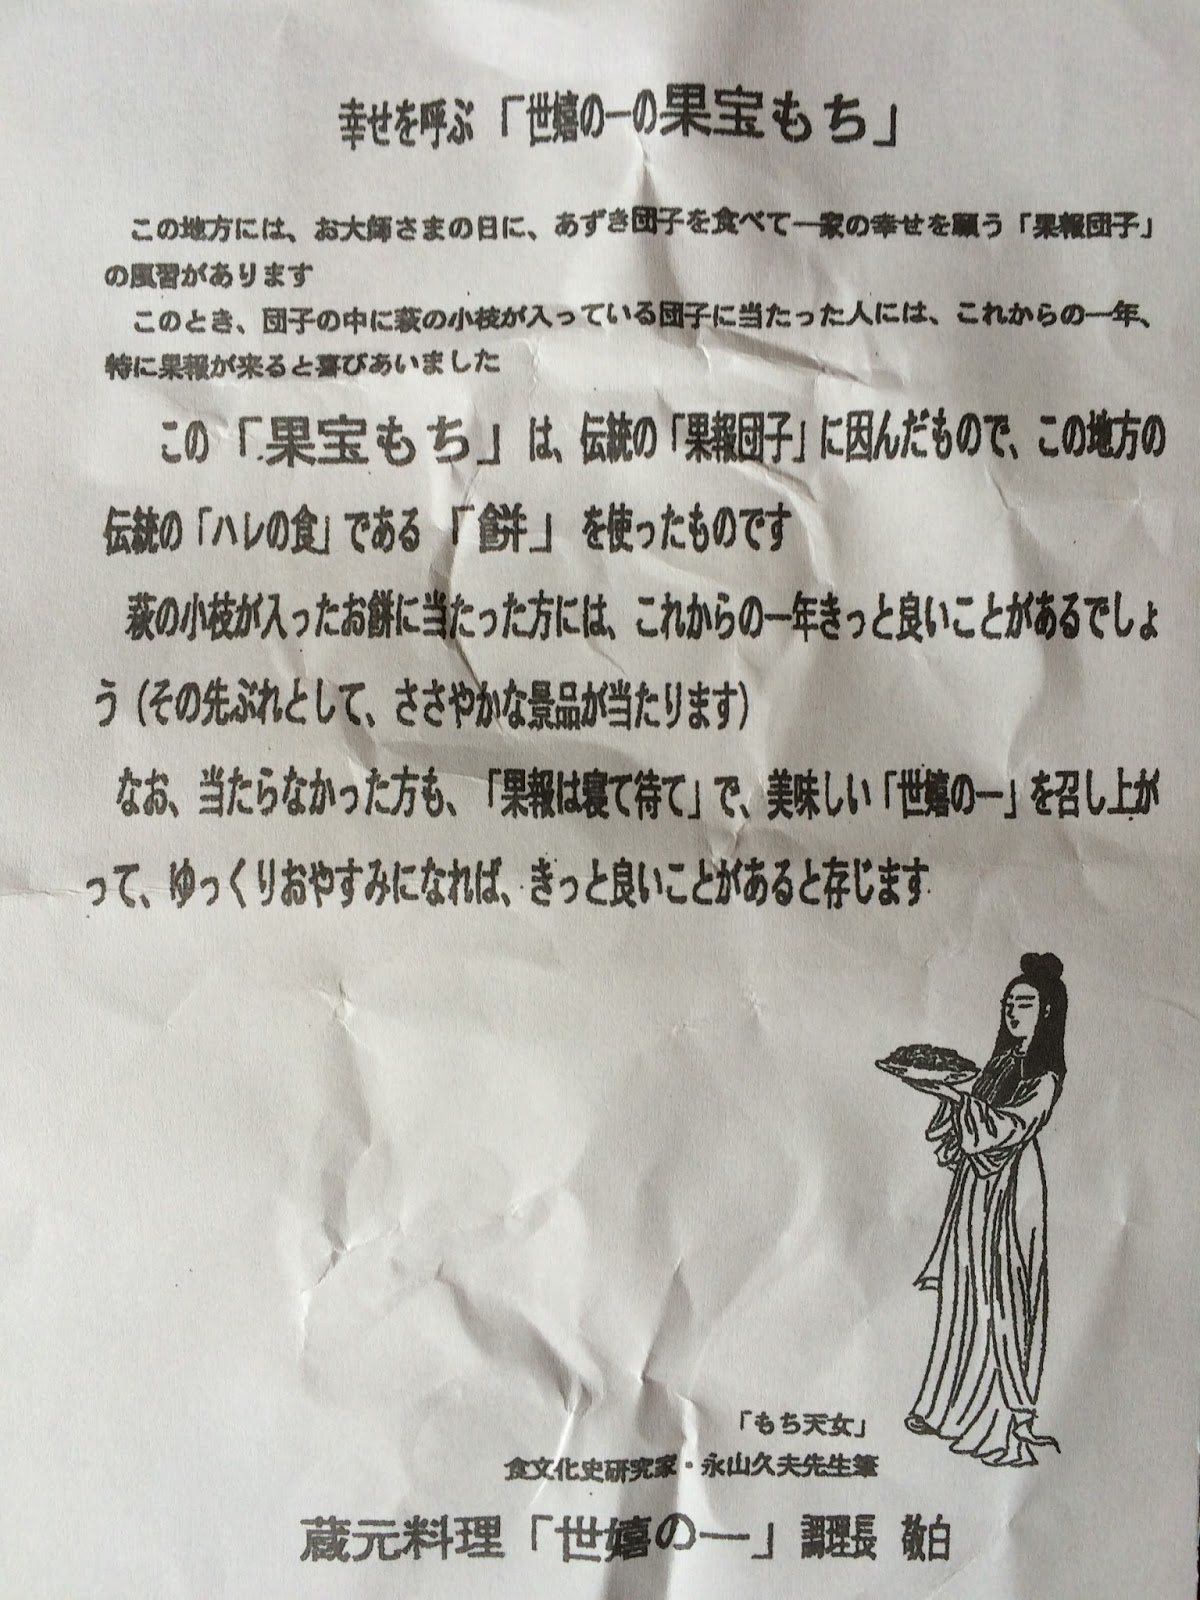 幸せを呼ぶ「世嬉の一の果宝もち」
この地方には、お大師さまの日に、あずき団子を食べて一家の幸せを願う「果報団子」
の風習があります
このとき、団子の中に萩の小枝が入っている団子に当たった人には、これからの一年、
特に果報が来ると喜びあいました
この「果宝もち」は、伝統の「果報団子」に因んだもので、この地方の
伝統の「ハレの食」である「餅」を使ったものです
萩の小枝が入ったお餅に当たった方には、これからの一年きっと良いことがあるでしょ
う（その先ぶれとして、ささやかな景品が当たります）
なお、当たらなかった方も、「果報は寝て待て」で、美味しい「世嬉の一」を召し上が
って、ゆっくりおやすみになれば、きっと良いことがあると存じます
「もち天女」
食文化史研究家・永山久夫先生筆
蔵元料理「世嬉の一」調理長 敬白